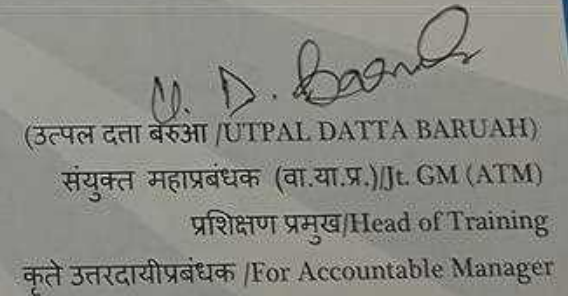 U. D. Baruah
(उत्पल दत्ता बरुआ /UTPAL DATTA BARUAH)
संयुक्त महाप्रबंधक (वा.या.प्र.)/Jt. GM (ATM)
प्रशिक्षण प्रमुख/Head of Training
कृते उत्तरदायीप्रबंधक /For Accountable Manager